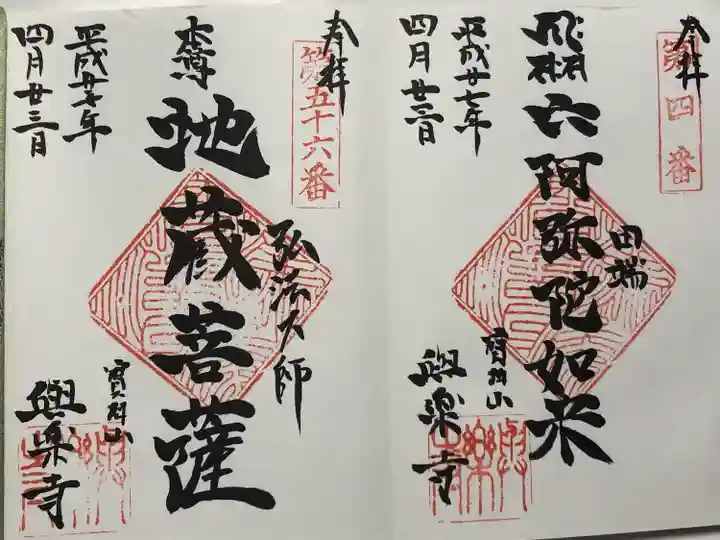 奉拝
第四番
武州六阿弥陀如来
田端
寳珠山
與楽寺
平成廿七年
四月廿三日
與楽寺
奉拝
第五十六番
弘法大師
本尊
地蔵菩薩
寳珠山
與楽寺
平成廿七年
四月廿三日